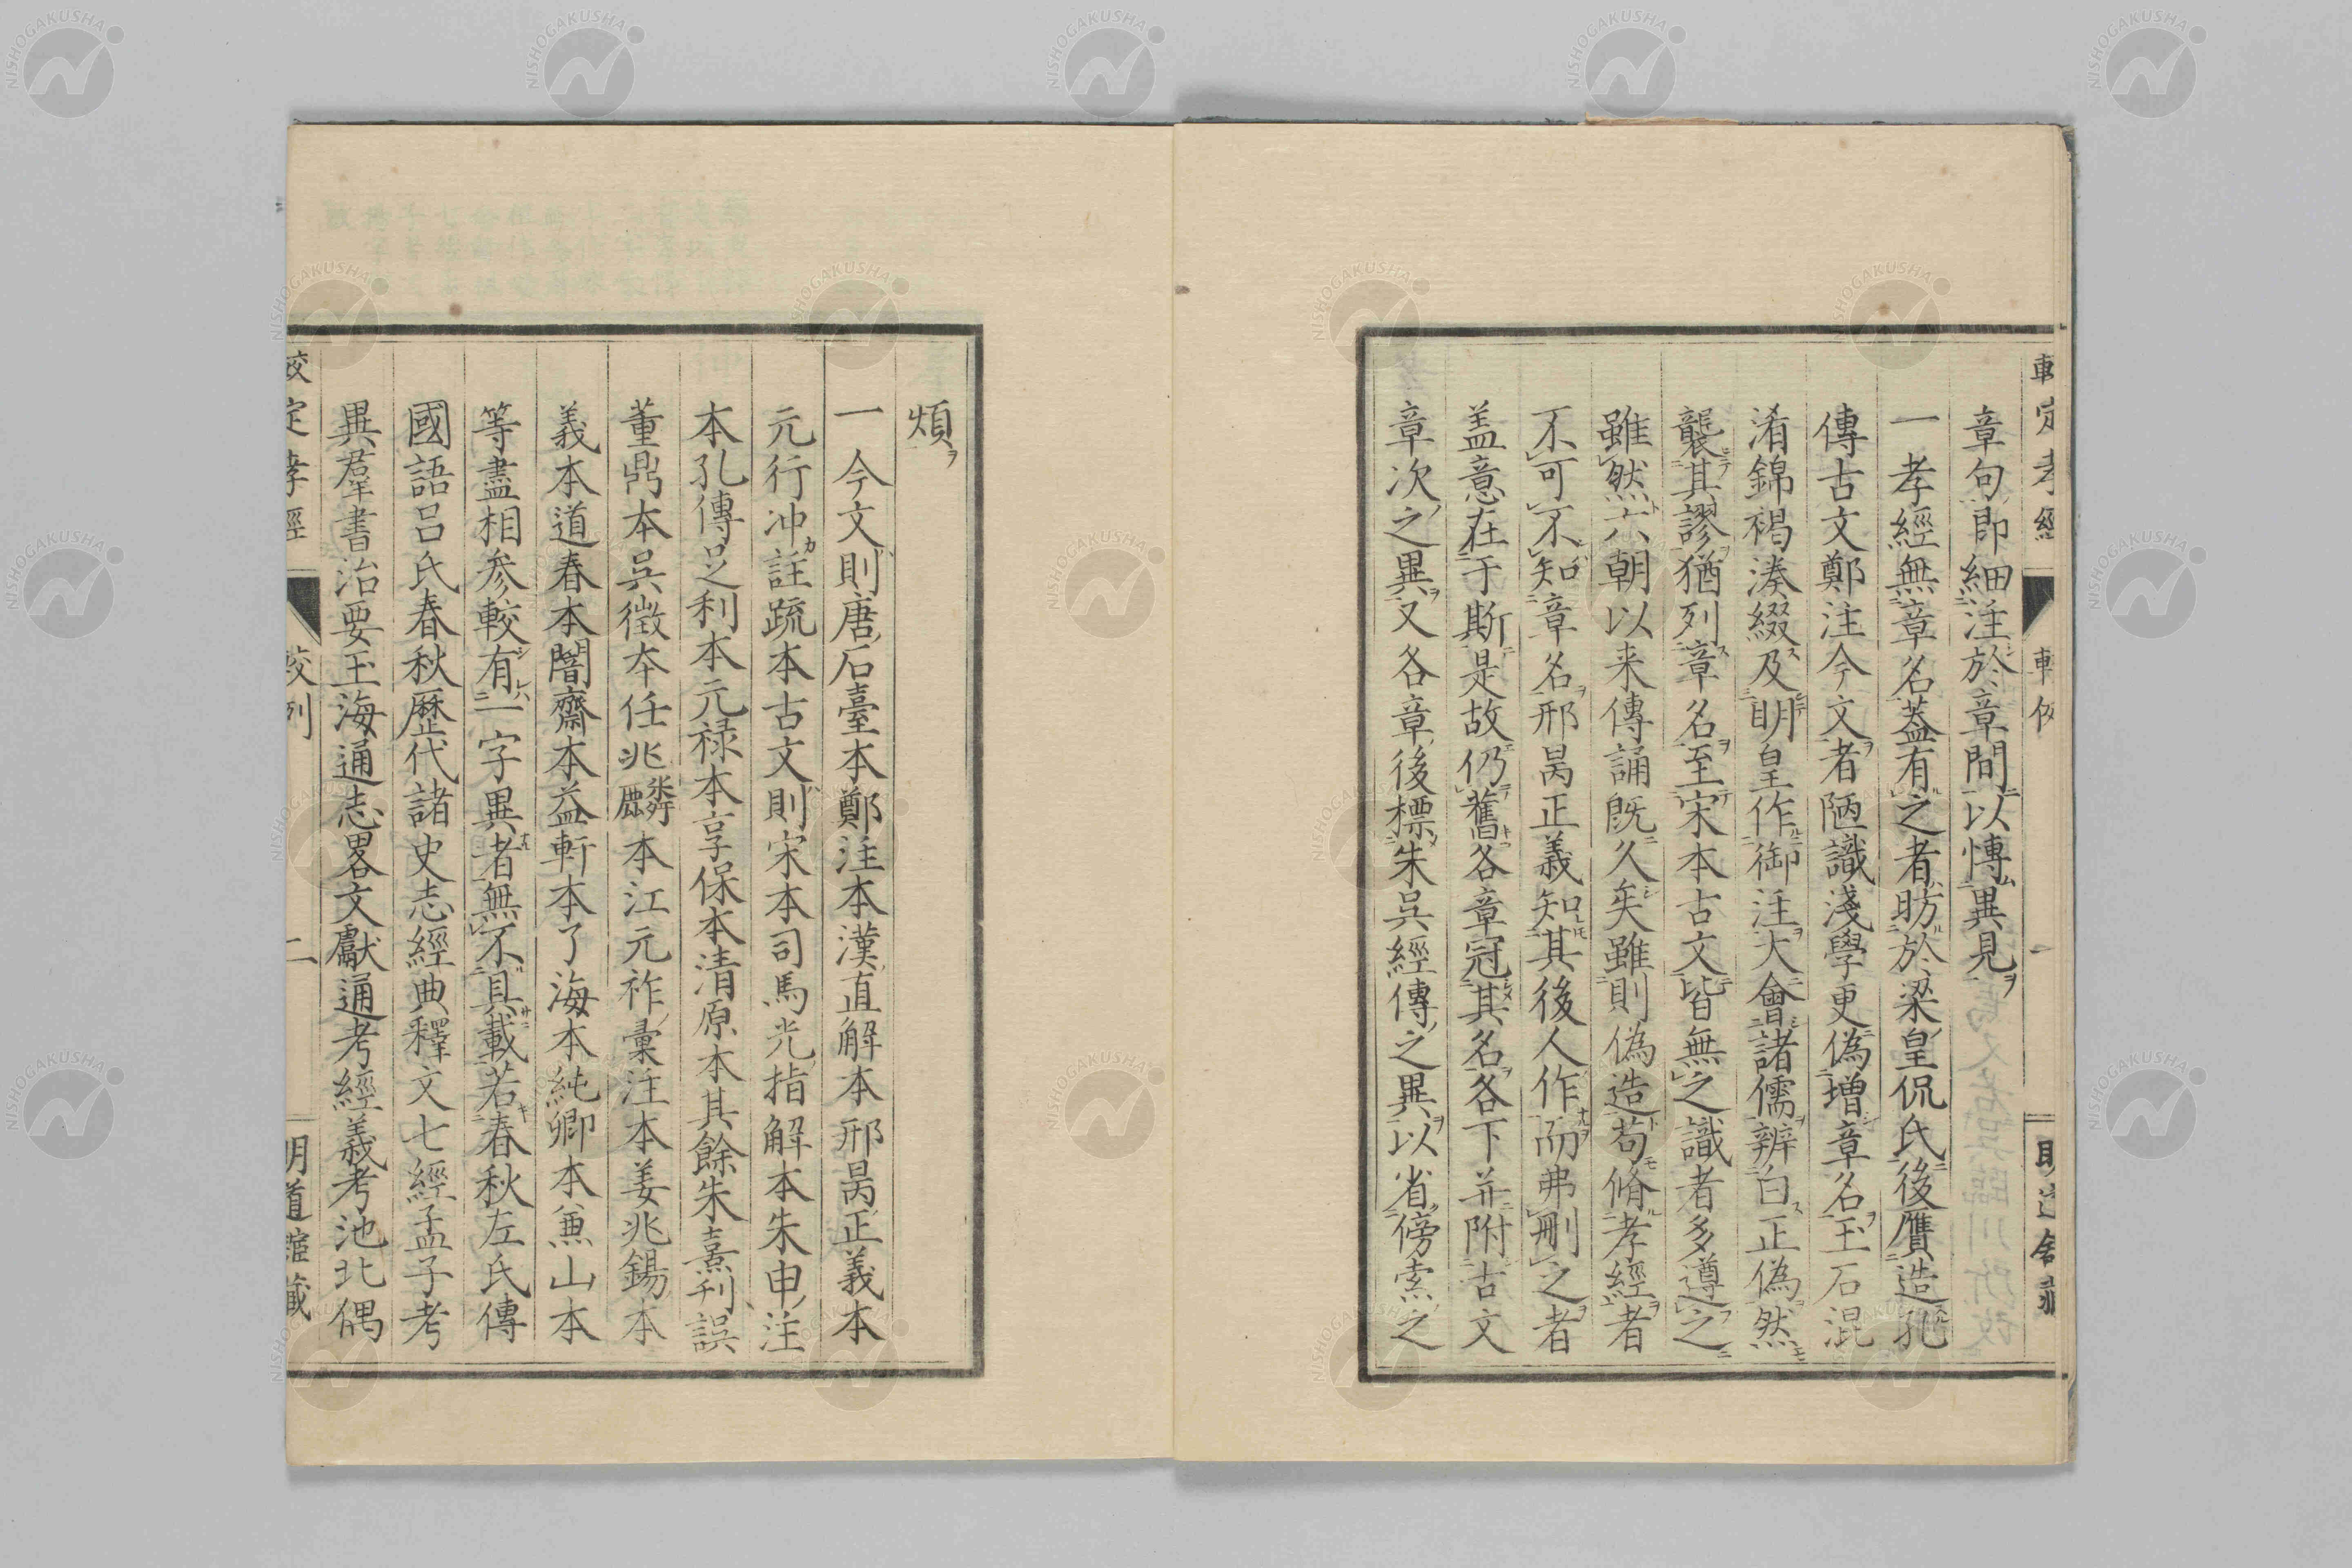 章句即細注於章間以慱異見ヲ
一孝經無章名蓋有之者昉於梁皇侃氏後贋造孔
傳古文鄭注今文者陋識淺學更偽增章名玉石混
淆錦褐湊綴及明皇作御注大會諸儒辨白正偽然
襲其謬猶列章名至宋本古文皆無之識者多遵之
雖然六朝以来傳誦既久矣雖則偽造苟脩孝經者
不可不知章名邢昺正義知其後人作而弗刪之者
盖意在于斯是故仍舊各章冠其名各下并附古文
章次之異又各章後標朱吳經傳之異以省傍索之
煩ヲ
一今文則唐石臺本鄭注本漢直解本邢昺正義本
元行冲註疏本古文則宋本司馬光指解本朱申注
本孔傳足利本元禄本享保本清原本其餘朱熹刊誤
董鼎本吳徵本任兆麟本江元祚彙注本姜兆錫本
義本道春本闇齋本益軒本了海本純卿本兼山本
等盡相参較有一字異者無不具載若春秋左氏傳
國語吕氏春秋歷代諸史志經典釋文七經孟子考
異羣書治要玉海通志畧文獻通考經義考池北偶
較定孝經 較例 二 明道館藏
NISHOGAKUSHA